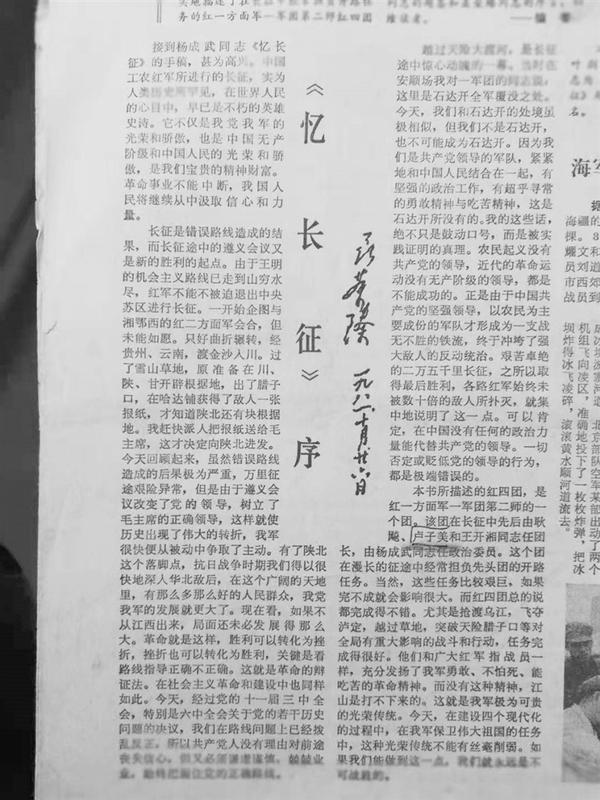 务的红一方面军一军团第二师红四团
接到杨成武同志《忆长
征》的手稿，甚为高兴。中国
工农红军所进行的长征，实为
人类历史所罕见，在世界人民
的心目中，早已是不朽的英雄
史诗。它不仅是我党我军的
光荣和骄傲，也是中国无产
阶级和中国人民的光荣和骄
傲，是我们宝贵的精神财富。
革命事业不能中断，我国人
民将继续从中汲取信心和力
量。
长征是错误路线造成的结
果，而长征途中的遵义会议又
是新的胜利的起点。由于王明
的机会主义路线已走到山穷水
尽，红军不能不被迫退出中央
苏区进行长征。一开始企图与
湘鄂西的红二方面军会合，但
未能如愿。只好曲折辗转，经
贵州、云南，渡金沙入川。过
了雪山草地，原准备在川、
陕、甘开辟根据地，出了腊子
口，在哈达铺获得了敌人一张
报纸，才知道陕北还有块根据
地。我赶快派人把报纸送给毛
主席，这才决定向陕北进发。
今天回顾起来，虽然错误路线
造成的后果极为严重，万里征
途艰险异常，但是由于遵义会
议改变了党的领导，树立了
毛主席的正确领导，这样就使
历史出现了伟大的转折，我军
很快便从被动中争取了主动。有了陕北
这个落脚点，抗日战争时期我们得以很
快地深入华北敌后，在这个广阔的天地
里，有那么多那么好的人民群众，我党
我军的发展就更大了。现在看，如果不
从江西出来，局面还未必发展得那么
大。革命就是这样，胜利可以转化为挫
折，挫折也可以转化为胜利，关键是看
路线指导正确不正确。这就是革命的辩
证法。在社会主义革命和建设中也同样
如此。今天，经过党的十一届三中全
会，特别是六中全会关于党的若干历史
问题的决议，我们在路线问题上已经拨
乱反正。所以共产党人没有理由对前途
丧失信心，但又必须谦虚谨慎，兢兢业
业，始终把握住党的正确路线。
《忆长征》序
聂荣臻
一九八一十月廿六日
越过天险大渡河，是长征
途中惊心动魄的一幕。当时在
安顺场我对一军团的同志说，
这里是石达开全军覆没之处。
今天，我们和石达开的处境虽
极相似，但我们不是石达开，
也不可能成为石达开。因为我
们是共产党领导的军队，紧紧
地和中国人民结合在一起，有
坚强的政治工作，有超乎寻常
的勇敢精神与吃苦精神，这是
石达开所没有的。我的这些话，
绝不只是鼓动口号，而是被实
践证明的真理。农民起义没有
共产党的领导，近代的革命运
动没有无产阶级的领导，都是
不能成功的。正是由于中国共
产党的坚强领导，以农民为主
要成份的军队才形成为一支战
无不胜的铁流，终于冲垮了强
大敌人的反动统治。艰苦卓绝
的二万五千里长征，之所以取
得最后胜利，各路红军始终未
被数十倍的敌人所扑灭，就集
中地说明了这一点。可以肯
定，在中国没有任何的政治力
量能代替共产党的领导。一切
否定或贬低党的领导的行为，
都是极端错误的。
本书所描述的红四团，是
红一方面军一军团第二师的一
个团。该团在长征中先后由耿
飚、卢子美和王开湘同志任团
长，由杨成武同志任政治委员。这个团
在漫长的征途中经常担负先头团的开路
任务。当然，这些任务比较艰巨，如果
完不成就会影响很大。而红四团总的说
都完成得不错。尤其是抢渡乌江，飞夺
泸定，越过草地，突破天险腊子口等对
全局有重大影响的战斗和行动，任务完
成得很好。他们和广大红军指战员一
样，充分发扬了我军勇敢、不怕死、能
吃苦的革命精神。而没有这种精神，江
山是打不下来的。这就是我军极为可贵
的光荣传统。今天，在建设四个现代化
的过程中，在我军保卫伟大祖国的任务
中，这种光荣传统不能有丝毫削弱。如
果我们能做到这一点，我们就永远是不
可战胜的。
海军
海疆的
棵。8
耀文和
员刘道
市西郊
战员到
北京部
队空军某
部出动了
两个
机组飞向凌区，准确地投下了一枚枚炸弹，把冰
坝炸得冰飞凌碎，滚滚黄水顺河道流去。